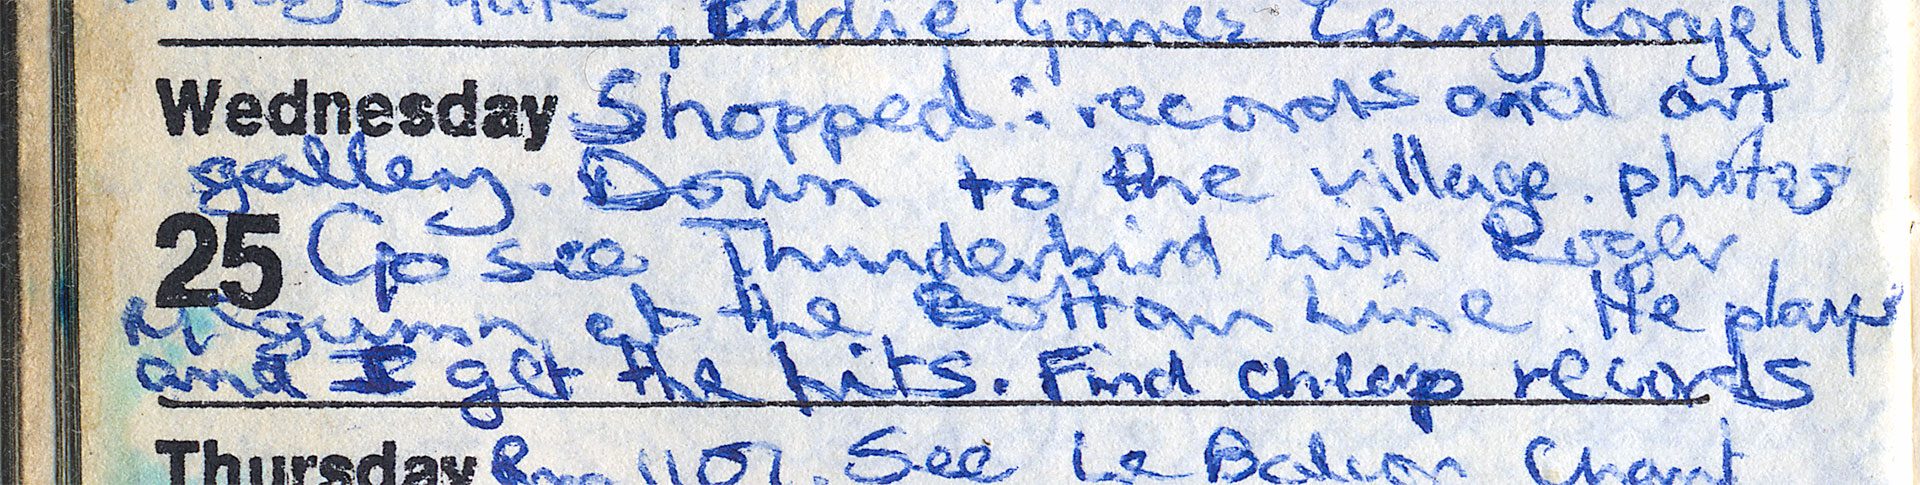 , Eddie Gomez Larry Coryell
Wednesday Shopped : records and art
gallery. Down to the village. photos
25 Go see Thunderbird with Roger
McGuinn at the Bottom Line. He plays
and I get the hits. Find cheap records
Thursday Rm 1101. See Le Balcon Chant